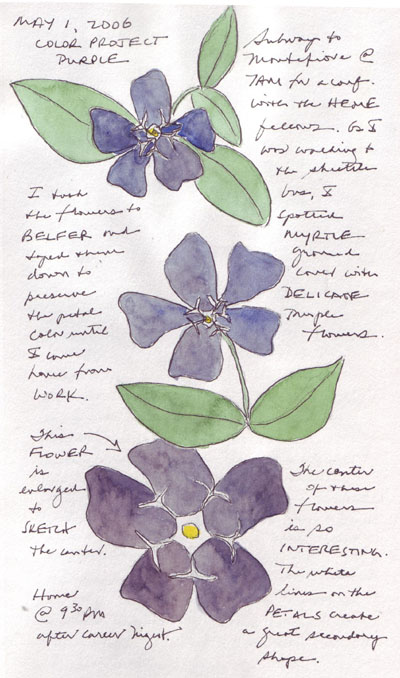 MAY 1, 2006
COLOR PROJECT
PURPLE
Subway to
Montefiore @
7AM for a conf.
with the HEME
fellows. As I
was walking to
the shuttle
bus, I
spotted
MYRTLE
ground
cover with
DELICATE
purple
flowers.
I took
the flowers to
BELFER and
taped them
down to
preserve
the petal
color until
I came
home from
WORK.
This
FLOWER
is
enlarged
to
SKETCH
the center.
The center
of these
flowers
is so
INTERESTING.
The white
lines on the
PETALS create
a great secondary
shape.
Home
@ 9:30 PM
after career